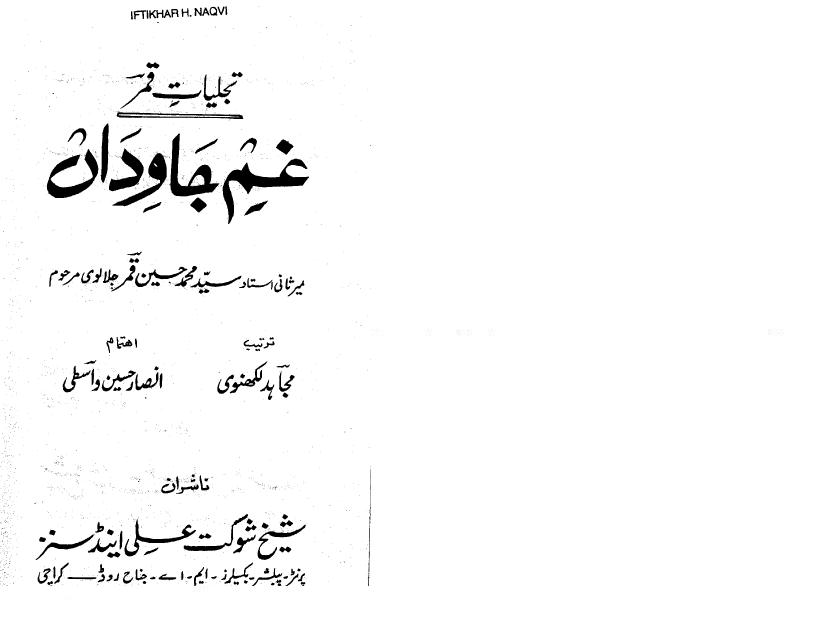 IFTIKHAR H. NAQVI
تجلیاتِ قمر
غمِ جاوِداں
میر ثانی استاد سیّد محمد حسین قمر جلالوی مرحوم
ترتیب اهتمام
مجاہد لکھنوی انصار حسین واسطی
ناشران
شیخ شوکت علی اینڈ سنز
پرنٹر - پبلشر - بکسیلرز - ایم - اے - جناح روڈ — کراچی